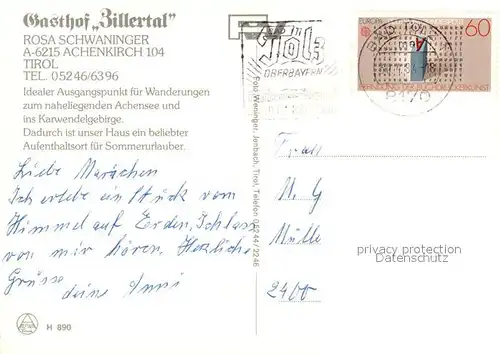 Gasthof „Zillertal"
ROSA SCHWANINGER
A-6215 ACHENKIRCH 104
TIROL
TEL. 05246/6396
Idealer Ausgangspunkt für Wanderungen
zum naheliegenden Achensee und
ins Karwendelgebirge.
Dadurch ist unser Haus ein beliebter
Aufenthaltsort für Sommerurlauber.
Liebe
Ich erlebe ein Stück vom
Himmel auf Erden, Ich lass
von mir hören, Herzliche
Grüsse
deine Anni
H 890
Foto Weninger, Jenbach, Tirol, Telefon 05244/2246
in
Tölz
OBERBAYERN
EUROPA
60
8170
Frau
M. G
Müller
2400
privacy protection
Datenschutz